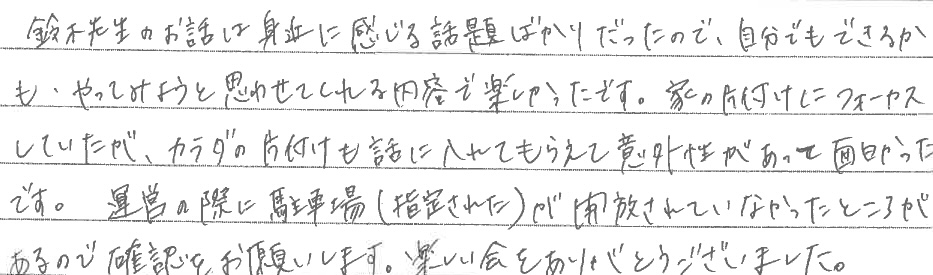 鈴木先生のお話は身近に感じる話題ばかりだったので、自分でもできるか
も・やってみようと思わせてくれる内容で楽しかったです。家の片付けにフォーカス
していたが、カラダの片付けも話に入れてもらえて意外性があって面白かった
です。 運営の際に駐車場(指定された)が開放されていなかったところが
あるので確認をお願いします。楽しい会をありがとうございました。